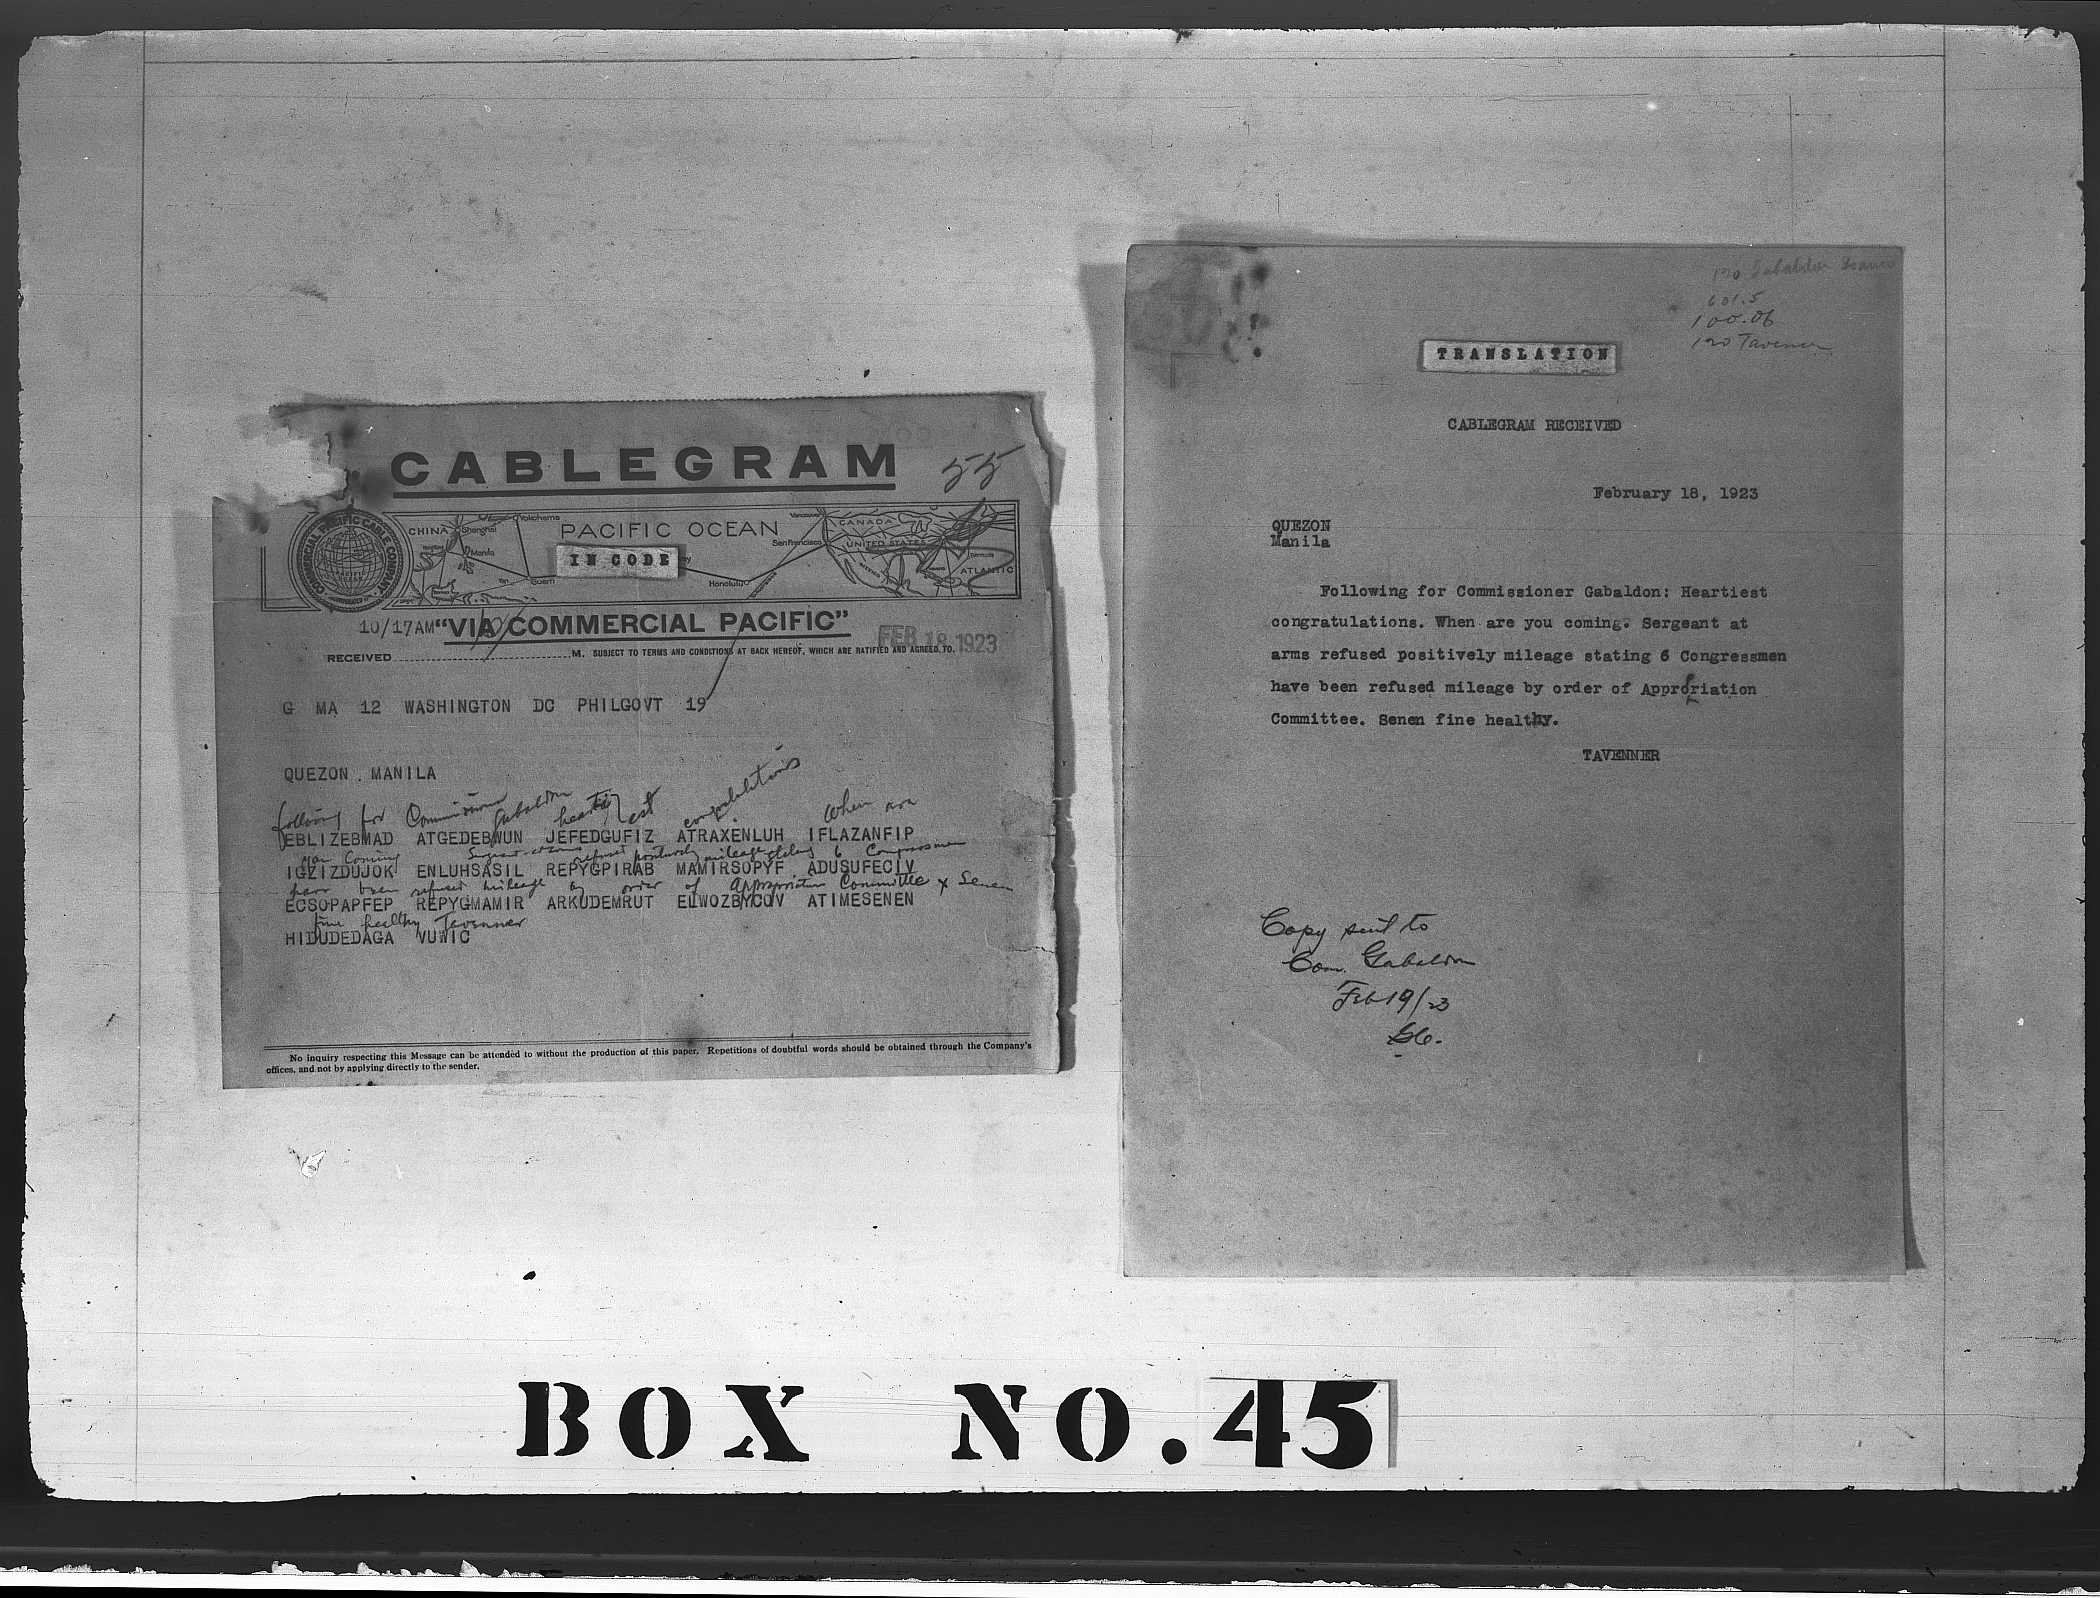 CABLEGRAM
55
COMMERCIAL PACIFIC CABLE COMPANY
CHINA Shanghai Yokohama PACIFIC OCEAN Vancouver CANADA
Manila IN CODE San Francisco UNITED STATES Bermuda
Guam Honolulu MEXICO ATLANTIC
10/17AM "VIA COMMERCIAL PACIFIC" FEB 18 1923
RECEIVED M. SUBJECT TO TERMS AND CONDITIONS AT BACK HEREOF, WHICH ARE RATIFIED AND AGREED TO.
G MA 12 WASHINGTON DC PHILGOVT 19
QUEZON MANILA
following for Commissioner Gabaldon heartiest congratulations When are
EBLIZEBMAD ATGEDEBWUN JEFEDGUFIZ ATRAXENLUH IFLAZANFIP
you coming Sergeant at arms refused positively mileage stating 6 Congressmen
IGZIZDUJOK ENLUHSASIL REPYGPIRAB MAMIRSOPYF ADUSUFECIV
have been refused mileage by order of appropriation Committee x Senen
ECSOPAPFEP REPYGMAMIR ARKUDEMRUT ELWOZBYCOV ATIMESENEN
fine healthy Tavenner
HIDUDEDAGA VUWIC
No inquiry respecting this Message can be attended to without the production of this paper. Repetitions of doubtful words should be obtained through the Company's
offices, and not by applying directly to the sender.
120 Gabaldon Isauro
601.5
100.06
120 Tavenner
TRANSLATION
CABLEGRAM RECEIVED
February 18, 1923
QUEZON
Manila
Following for Commissioner Gabaldon: Heartiest
congratulations. When are you coming? Sergeant at
arms refused positively mileage stating 6 Congressmen
have been refused mileage by order of Approriation
Committee. Senen fine healthy.
TAVENNER
Copy sent to
Com. Gabaldon
Feb 19/23
BOX NO. 45